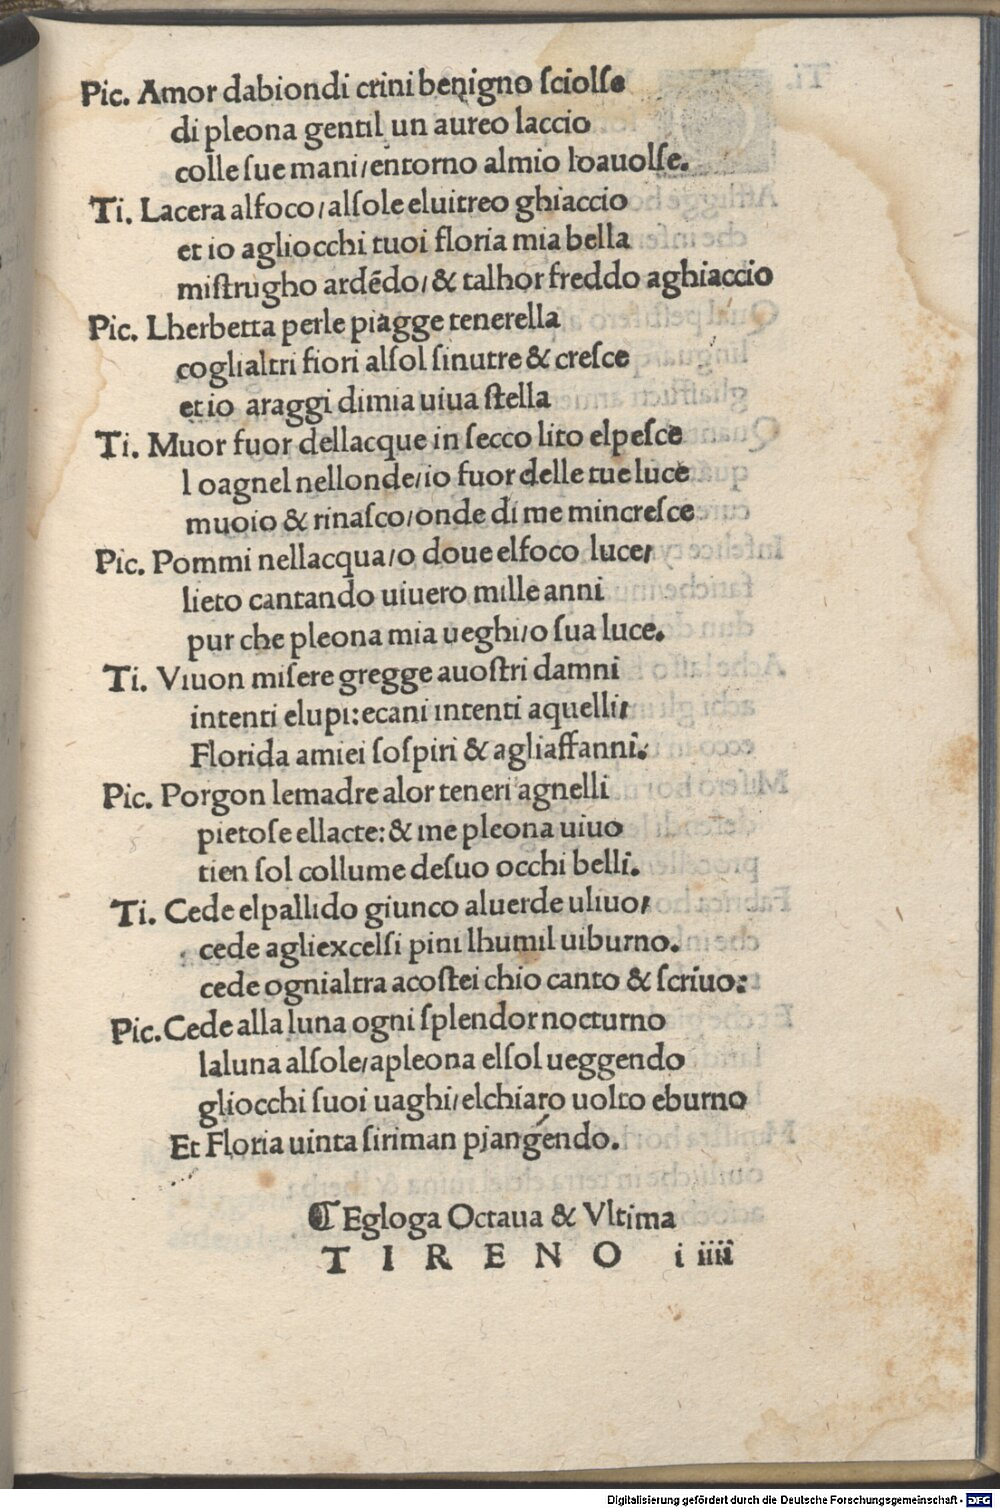 Pic. Amor dabiondi crini benigno ſciolſe
di pleona gentil un aureo laccio
colle ſue mani/entorno almio loauolſe.
Ti. Lacera alfoco/alſole eluitreo ghiaccio
et io agliocchi tuoi floria mia bella
miſtrugho ardēdo/& talhor freddo aghiaccio
Pic. Lherbetta perle piagge tenerella
coglialtri fiori alſol ſinutre & creſce
et io araggi dimia uiua ſtella
Ti. Muor fuor dellacque in ſecco lito elpeſce
loagnel nellonde/io fuor delle tue luce
muoio & rinaſco/onde di me mincreſce
Pic. Pommi nellacqua/o doue elfoco luce/
lieto cantando uiuero mille anni
pur che pleona mia ueghi/o ſua luce.
Ti. Viuon miſere gregge auoſtri damni
intenti elupi:ecani intenti aquelli/
Florida amiei ſoſpiri & agliaffanni.
Pic. Porgon lemadre alor teneri agnelli
pietoſe ellacte:& me pleona uiuo
tien ſol collume deſuo occhi belli.
Ti. Cede elpallido giunco aluerde uliuo/
cede agliexcelſi pini lhumil uiburno.
cede ognialtra acoſtei chio canto & ſcriuo:
Pic. Cede alla luna ogni ſplendor nocturno
laluna alſole/apleona elſol ueggendo
gliocchi ſuoi uaghi/elchiaro uolto eburno
Et Floria uinta ſiriman piangendo.
⸿ Egloga Octaua & Vltima
TIRENO i iiii
Digitalisierung gefördert durch die Deutsche Forschungsgemeinschaft - DFG